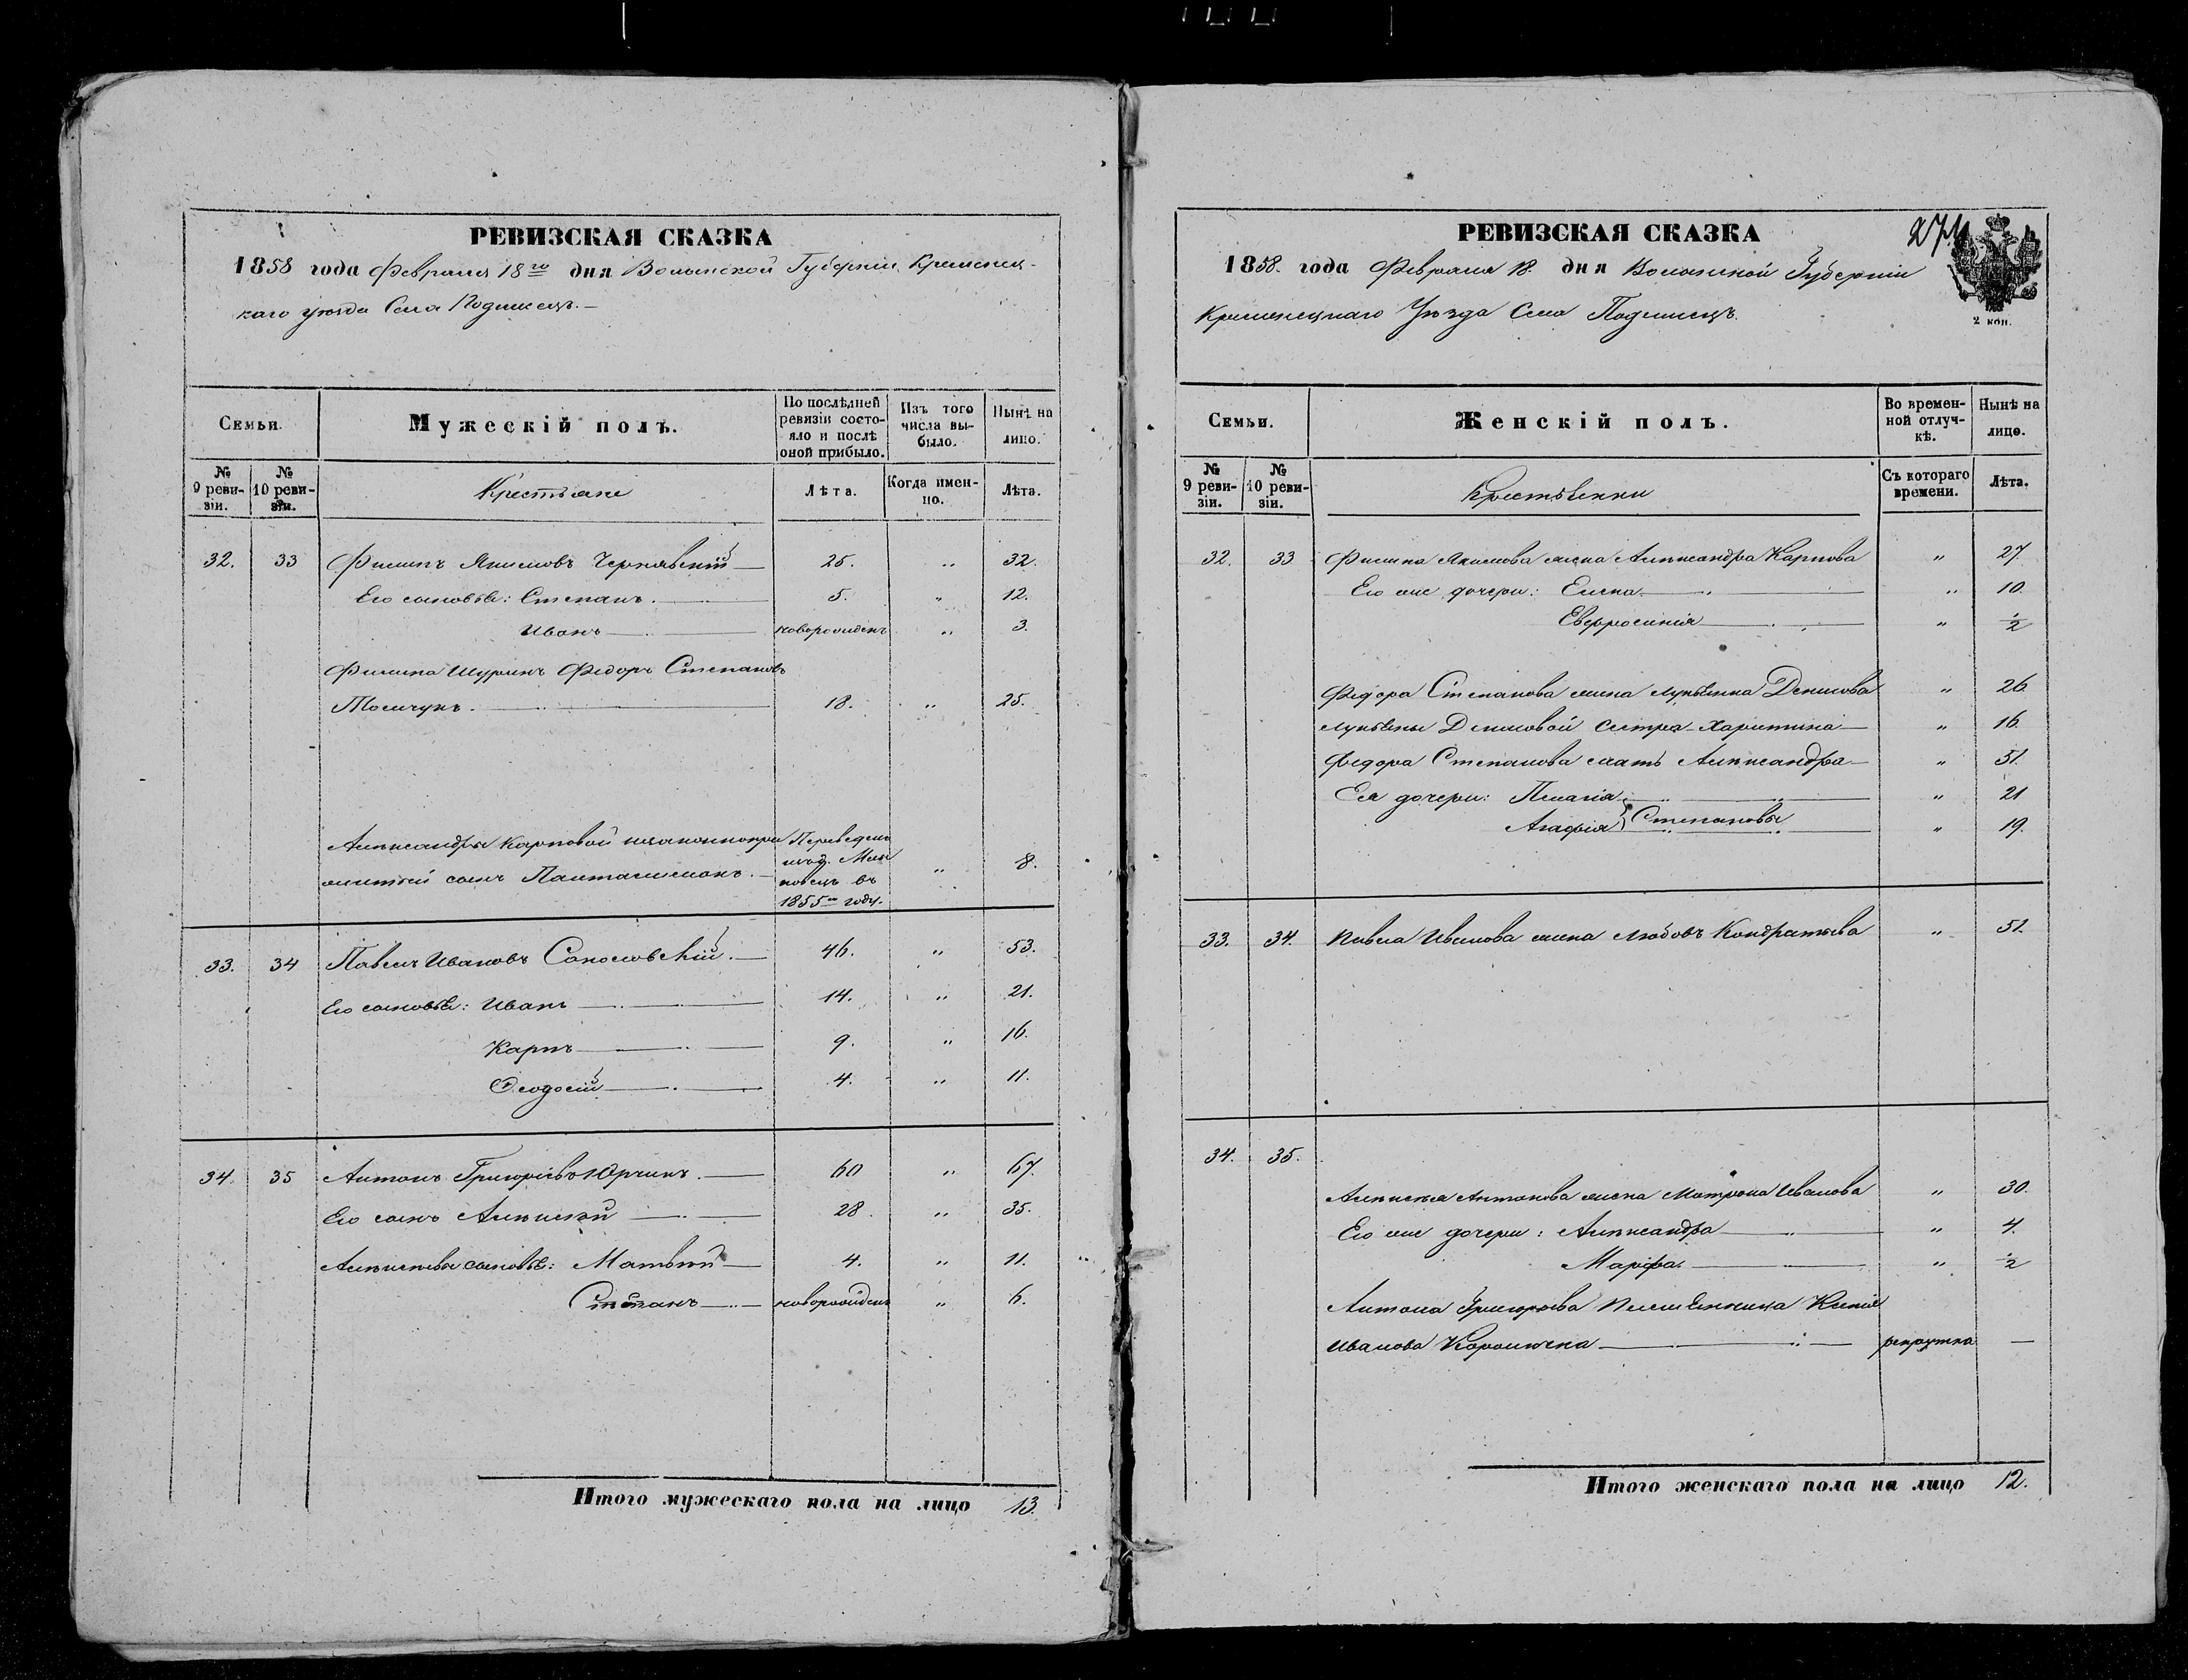 РЕВИЗСКАЯ СКАЗКА
1858 года Февраля 18го дня Волынской Губерніи Кременец-
каго уѣзда Села Подлисецъ.
Семьи.
Мужескій полъ.
По послѣдней ревизіи состояло и послѣ оной прибыло.
Изъ того числа выбыло.
Нынѣ на лицо.
№ 9 ревизіи.
№ 10 ревизіи.
Крестьяне
Лѣта.
Когда именно.
Лѣта.
32. 33 Филипъ Якимовъ Чернявскій 25. „ 32.
Его сыновья: Степанъ. 5. „ 12.
Иванъ новорожденъ „ 3.
Филипа Шуринъ Федоръ Степановъ
18. „ 25.
Александры Карповой незаконнопри Переведенъ
житый сынъ Пантелимонъ. „ 8.
въ
1855мъ году.
33. 34 Павелъ Ивановъ 46. „ 53.
Его сыновья: Иванъ 14. „ 21.
Карпъ 9. „ 16.
Ѳеодосій 4. „ 11.
34. 35 Антонъ Григорьевъ Юрчикъ. 60 „ 67.
Его сынъ Алексѣй 28. „ 35.
Алексѣевы сыновья: Матвѣй 4. „ 11.
Степанъ новорожденъ „ 6.
Итого мужескаго пола на лицо 13.
РЕВИЗСКАЯ СКАЗКА 274
1858. года Февраля 18. дня Волынской Губерніи
Кременецкаго Уѣзда Села Подлисецъ.
2 коп.
Семьи.
Женскій полъ.
Во временной отлучкѣ.
Нынѣ на лицо.
№ 9 ревизіи.
№ 10 ревизіи.
Крестьянки
Съ котораго времени.
Лѣта.
32. 33 Филипа Якимова жена Александра Карпова „ 27
Его же дочери: Елена „ 10.
Евфросинія „ ½
Федора Степанова жена Лукѣяна Денисова „ 26
Лукѣяны Денисовой сестра Харитина „ 16.
Федора Степанова мать Александра „ 51.
Ея дочери: Пелагія „ 21
Агафія } Степановы „ 19.
33. 34. Павла Иванова жена Любовъ Кондратьева „ 51.
34. 35.
Алексѣя Антонова жена Матрона Иванова „ 30.
Его же дочери: Александра „ 4.
Марфа. „ ½
Антона Григорьева Племѣнница Ксенія
Иванова рекрутка —
Итого женскаго пола на лицо 12.